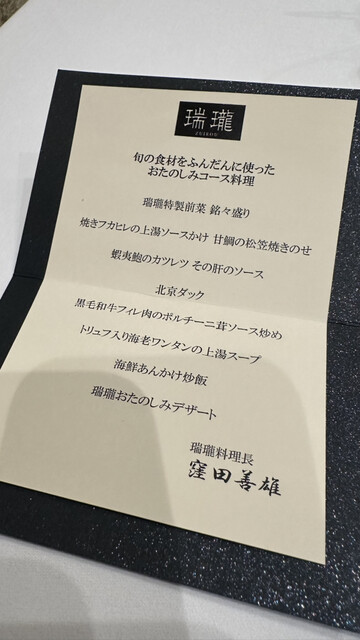 瑞瓏
ZUIROH
旬の食材をふんだんに使った
おたのしみコース料理
瑞瓏特製前菜 銘々盛り
焼きフカヒレの上湯ソースかけ 甘鯛の松笠焼きのせ
蝦夷鮑のカツレツ その肝のソース
北京ダック
黒毛和牛フィレ肉のポルチーニ茸ソース炒め
トリュフ入り海老ワンタンの上湯スープ
海鮮あんかけ炒飯
瑞瓏おたのしみデザート
瑞瓏料理長
窪田善雄